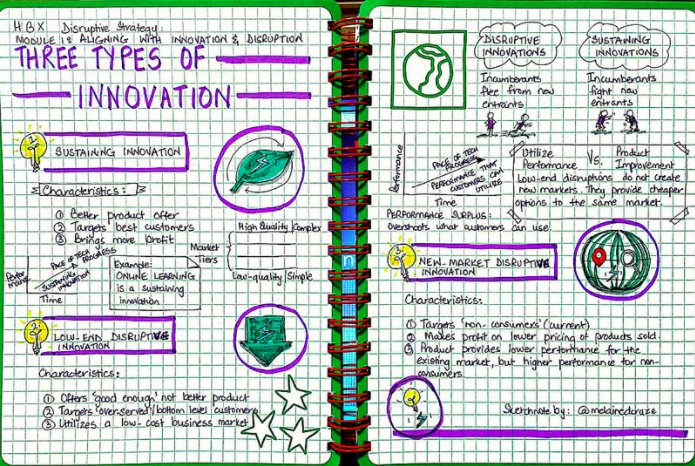 HBX Disruptive Strategy:
MODULE 1: ALIGNING WITH INNOVATION & DISRUPTION
THREE TYPES OF
INNOVATION
SUSTAINING INNOVATION
Characteristics:
① Better product offer
② Targets best customers
③ Brings more profit
PACE OF TECH PROGRESS
SUSTAINING INNOVATION
Time
Example:
ONLINE LEARNING
is a sustaining
innovation
Market
Tiers
High Quality/Complex
Low-quality/Simple
LOW-END DISRUPTIVE
INNOVATION
Characteristics:
① Offers 'good enough' not better product
② Targets 'overserved'/bottom level customers
③ Utilizes a low-cost business market
DISRUPTIVE
INNOVATIONS
Incumberants
flee from new
entraints
SUSTAINING
INNOVATIONS
Incumberants
fight new
entrants
Performance
PACE OF TECH
PROGRESS
PERFORMANCE THAT
CUSTOMERS CAN
UTILIZE
Time
Utilize Product
Performance VS. Improvement
Low-end disruptions do not create
new markets. They provide cheaper
options to the same market.
PERFORMANCE SURPLUS:
overshoots what customers can use.
NEW-MARKET DISRUPTIVE
INNOVATION
Characteristics:
① Targets 'non-consumers' (current)
② Makes profit on lower pricing of products sold.
③ Product provides lower performance for the
existing market, but higher performance for non-
consumers.
Sketchnote by: @melainedcruze